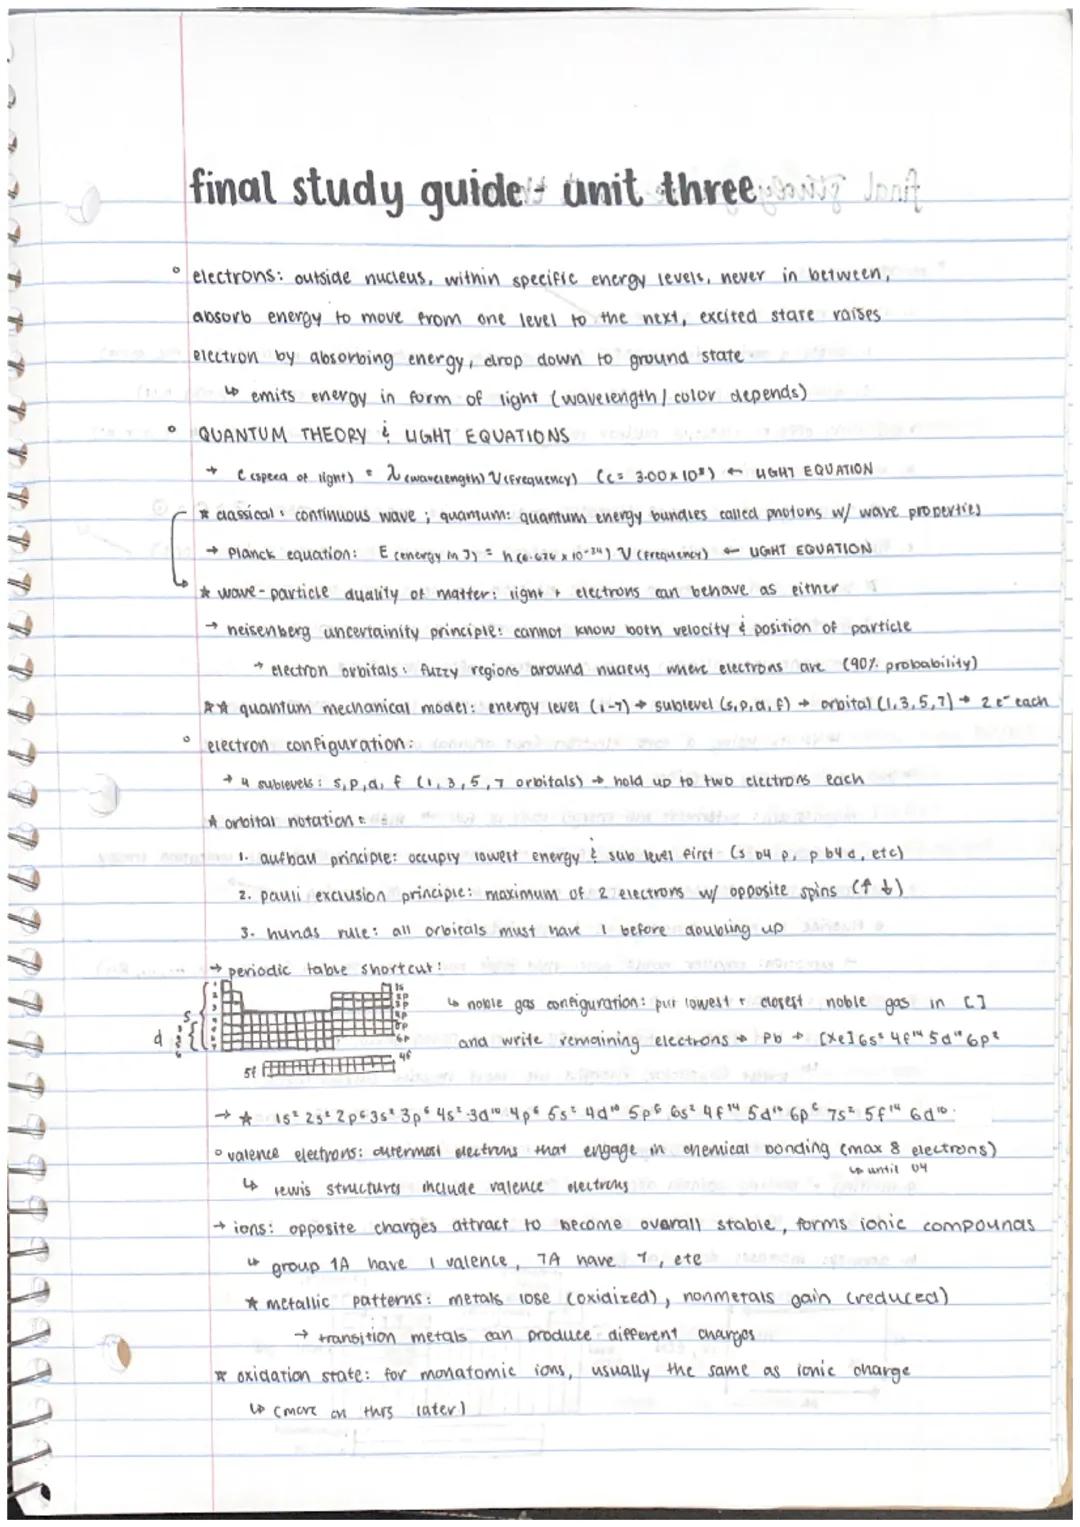 final study guide - unit three
° electrons: outside nucleus, within specific energy levels, never in between,
absorb energy to move from one level to the next, excited state raises
electron by absorbing energy, drop down to ground state
↳ emits energy in form of light (wavelength / color depends)
° QUANTUM THEORY & LIGHT EQUATIONS
→ C (speed of light) = λ (wavelength) V (frequency) (c = 3.00 x 10⁸) ← LIGHT EQUATION
* classical: continuous wave ; quantum: quantum energy bundles called photons w/ wave properties
→ Planck equation: E (energy in J) = h (6.626 x 10⁻³⁴) V (frequency) ← LIGHT EQUATION
* wave-particle duality of matter: light + electrons can behave as either
→ heisenberg uncertainity principle: cannot know both velocity & position of particle
→ electron orbitals: fuzzy regions around nucleus where electrons are (90% probability)
** quantum mechanical model: energy level (1-7) → sublevel (s,p,d,f) → orbital (1,3,5,7) → 2 e⁻ each
° electron configuration:
→ 4 sublevels: s,p,d, f (1,3,5,7 orbitals) → hold up to two electrons each
* orbital notation:
1. aufbau principle: occupy lowest energy & sub level first (s b4 p, p b4 d, etc)
2. pauli exclusion principle: maximum of 2 electrons w/ opposite spins (↑ ↓)
3. hunds rule: all orbitals must have 1 before doubling up
→ periodic table shortcut:
↳ noble gas configuration: put lowest + closest noble gas in [ ]
and write remaining electrons → Pb → [Xe] 6s² 4f¹⁴ 5d¹⁰ 6p²
1 2 3 4 5 6 7
s
d
1s
2p
3p
4p
5p
6p
4f
5f
→ * 1s² 2s² 2p⁶ 3s² 3p⁶ 4s² 3d¹⁰ 4p⁶ 5s² 4d¹⁰ 5p⁶ 6s² 4f¹⁴ 5d¹⁰ 6p⁶ 7s² 5f¹⁴ 6d¹⁰
° valence electrons: outermost electrons that engage in chemical bonding (max 8 electrons)
↳ until U4
↳ lewis structures include valence electrons
→ ions: opposite charges attract to become overall stable, forms ionic compounds
↳ group 1A have 1 valence, 7A have 7, etc
* metallic patterns: metals lose (oxidized), nonmetals gain (reduced)
→ transition metals can produce different charges
* oxidation state: for monatomic ions, usually the same as ionic charge
↳ (more on this later)